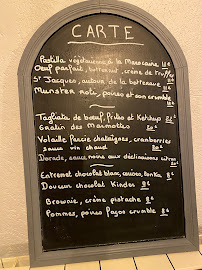 CARTE
Pastilla végétarienne à la Marocaine 11€
Oeuf parfait, butternut, crème de truffes
St Jacques, autour de la betterave
Munster roti, poires et son crumble
Tagliata de bœuf, frites et Ketchup 22€
Gratin des Marmottes 20€
Volaille Farcie chataignes, cranberries
sauce vin chaud
Dorade, sauce, nous aux déclinaisons citron
Entremet chocolat blanc, coco, Tonka 8€
Douceur chocolat Kinder 8€
Brownie, crème pistache 8€
Pommes, poires façon crumble 8€